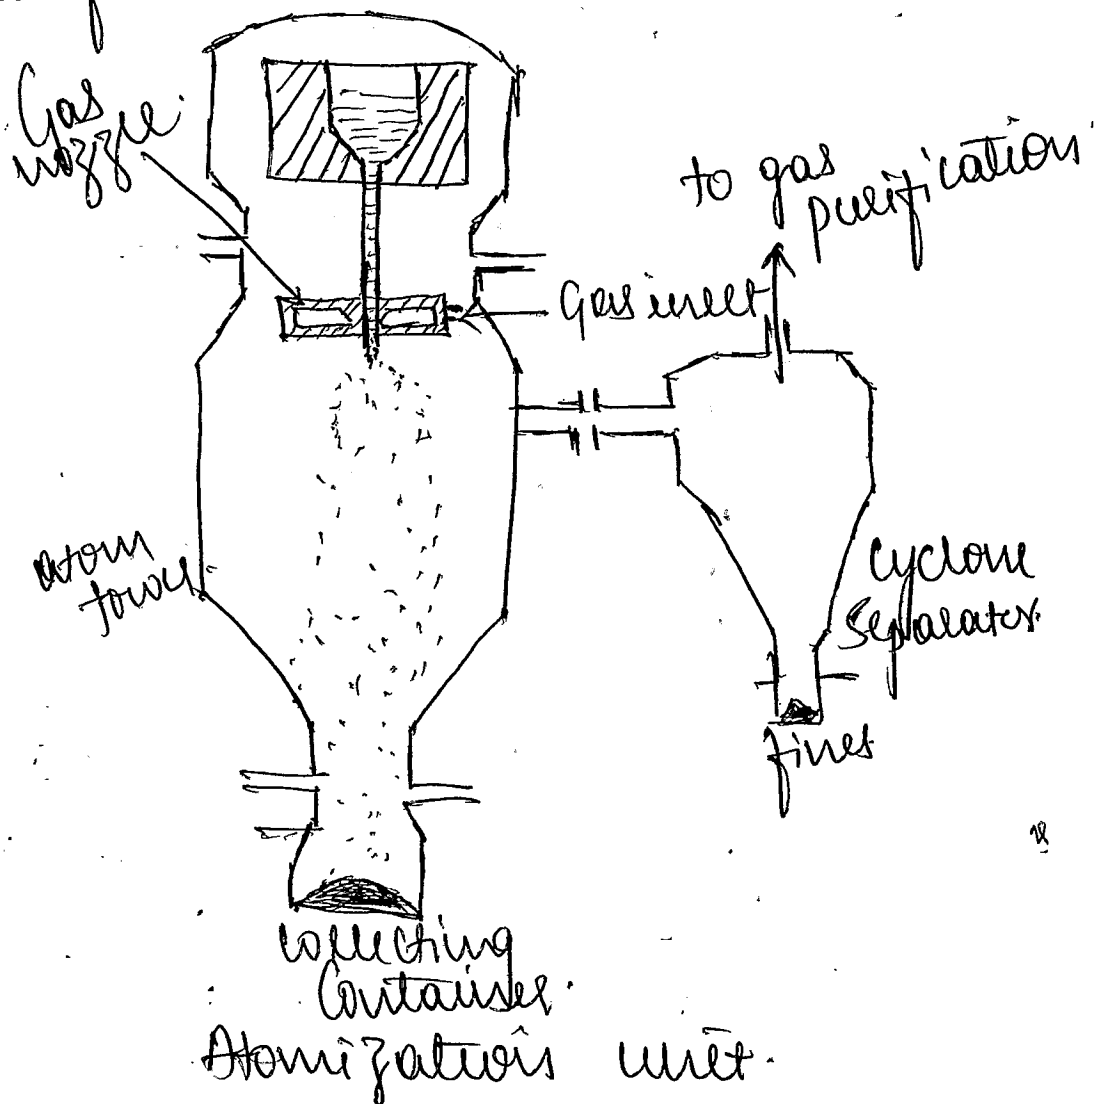 Gas
nozzle
to gas
purification
Gas inlet
atom
tower
Cyclone
Separator
fines
Collecting
Container
Atomization unit